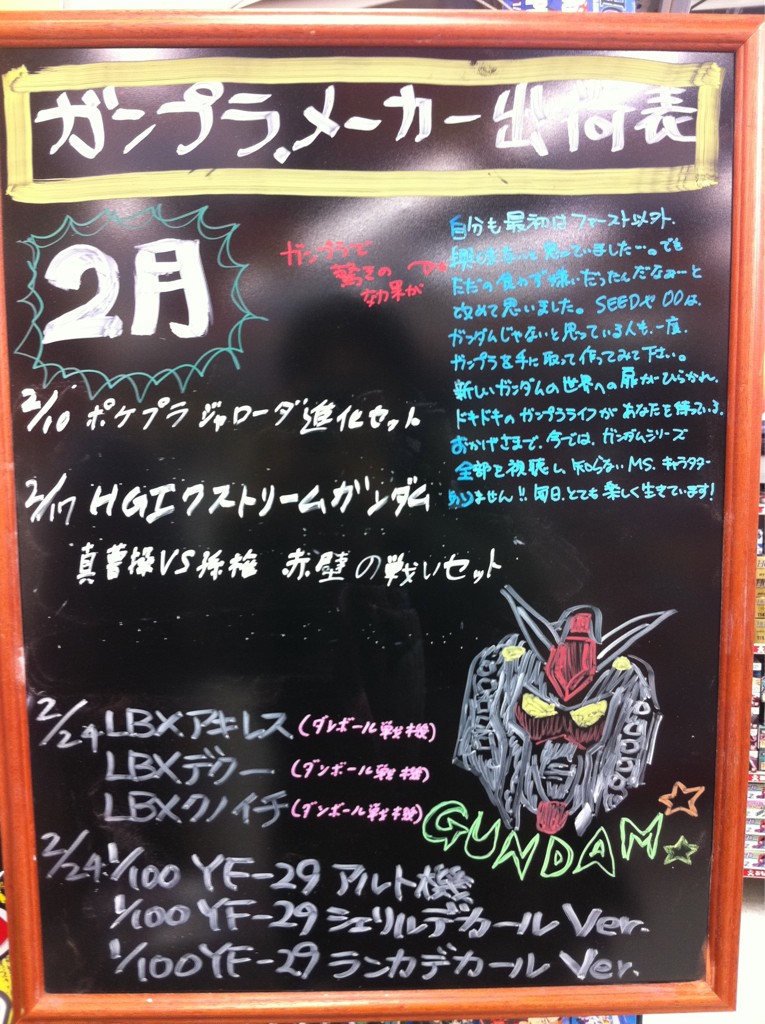 ガンプラ.メーカー出荷表
2月
ガンプラで
驚きの
効果が
自分も最初はファースト以外、
と思っていました…。でも
ただの食わず嫌いだったんだなぁーと
改めて思いました。SEEDや00は、
ガンダムじゃないと思っている人も、一度、
ガンプラを手に取って作ってみて下さい。
新しいガンダムの世界への扉がひらかれ、
ドキドキのガンプラライフがあなたを待っている。
おかげさまで、今では、ガンダムシリーズ
全部を視聴し、知らないMS、キャラクター
ありません!!毎日、とても楽しく生きています!
2/10 ポケプラ ジャローダ進化セット
2/17 HGエクストリームガンダム
真曹操VS孫権 赤壁の戦いセット
2/24 LBXアキレス(ダンボール戦機)
LBXデクー (ダンボール戦機)
LBXクノイチ(ダンボール戦機)
GUNDAM
2/24 1/100 YF-29 アルト機
1/100 YF-29 シェリルデカール Ver.
1/100 YF-29 ランカデカール Ver.